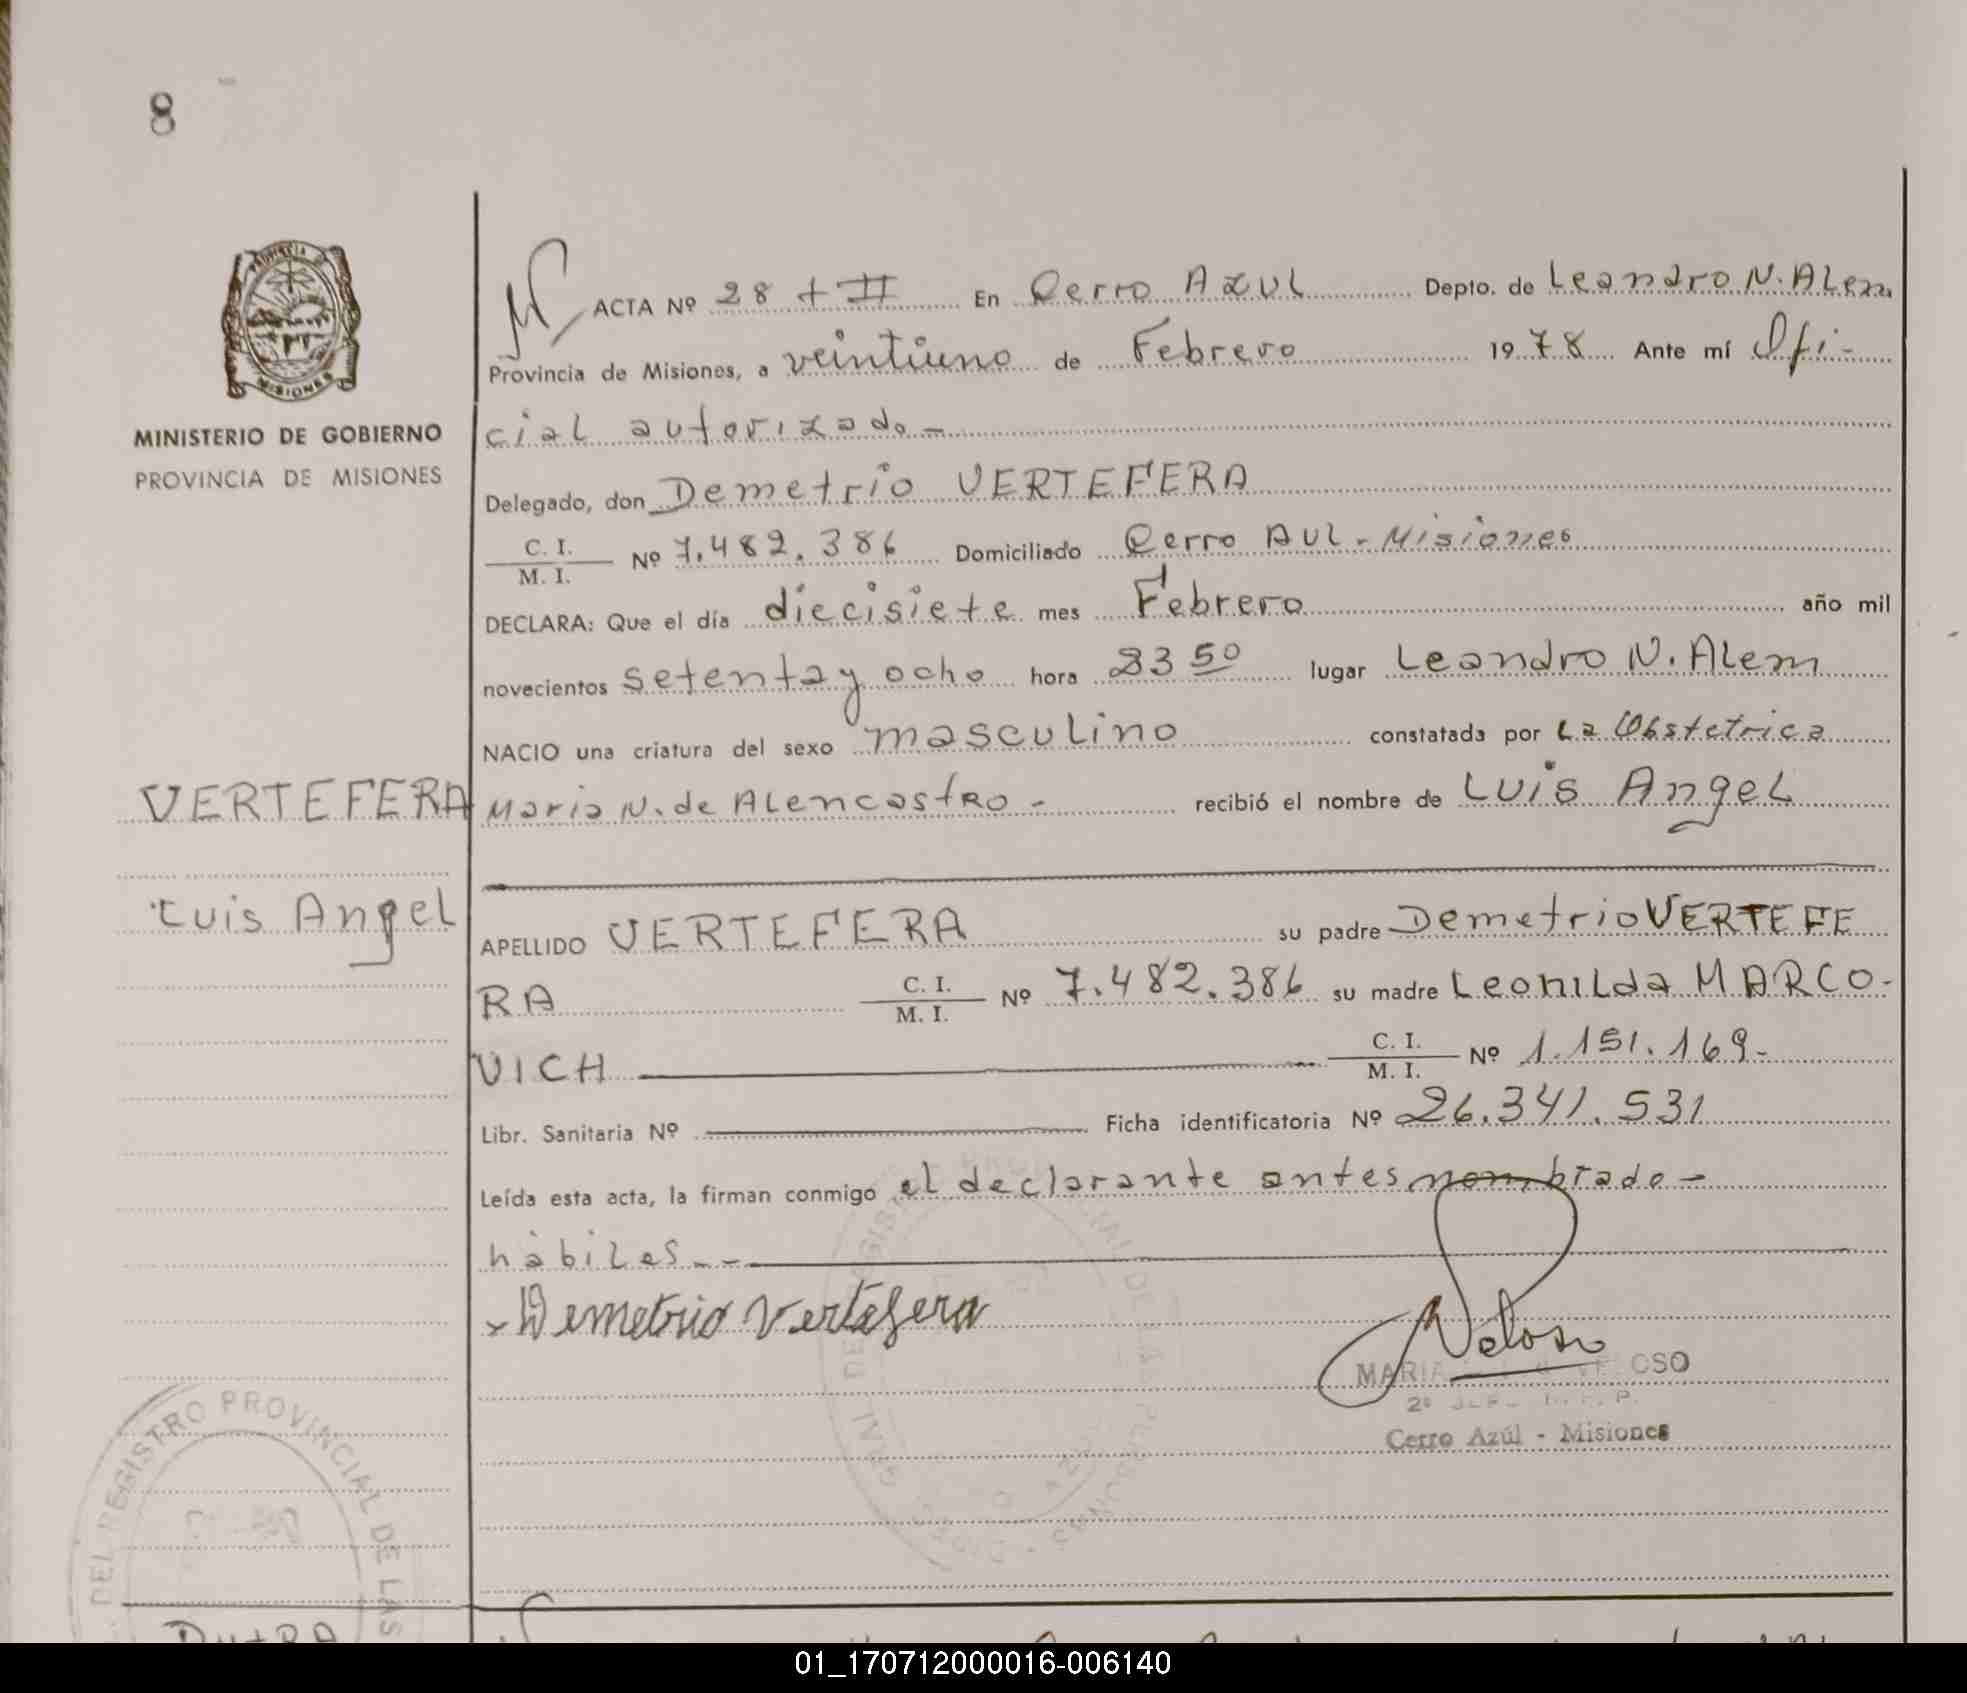 8
PROVINCIA DE
MISIONES
MINISTERIO DE GOBIERNO
PROVINCIA DE MISIONES
ACTA Nº 28 + II En Cerro Azul Depto. de Leandro N. Alem
Provincia de Misiones, a veintiuno de Febrero 1978 Ante mí Ofi-
cial autorizado -
Delegado, don Demetrio VERTEFERA
C. I.
M. I. Nº 7.482.386 Domiciliado Cerro Aul - Misiones
DECLARA: Que el día diecisiete mes Febrero año mil
novecientos setenta y ocho hora 23 50 lugar Leandro N. Alem
NACIO una criatura del sexo masculino constatada por La Obstetrica
Maria N. de Alencastro - recibió el nombre de Luis Angel
VERTEFERA
Luis Angel
APELLIDO VERTEFERA su padre Demetrio VERTEFE
RA C. I.
M. I. Nº 7.482.386 su madre Leonilda MARCO-
VICH C. I.
M. I. Nº 1.151.169-
Libr. Sanitaria Nº Ficha identificatoria Nº 26.341.531
Leída esta acta, la firman conmigo el declarante antes nombrado -
hàbiles --
x Demetrio Vertefera
Veloso
MARIA OSO
2º
Cerro Azúl - Misiones
DEL REGISTRO PROVINCIAL DE LAS
DutRA
01_170712000016-006140